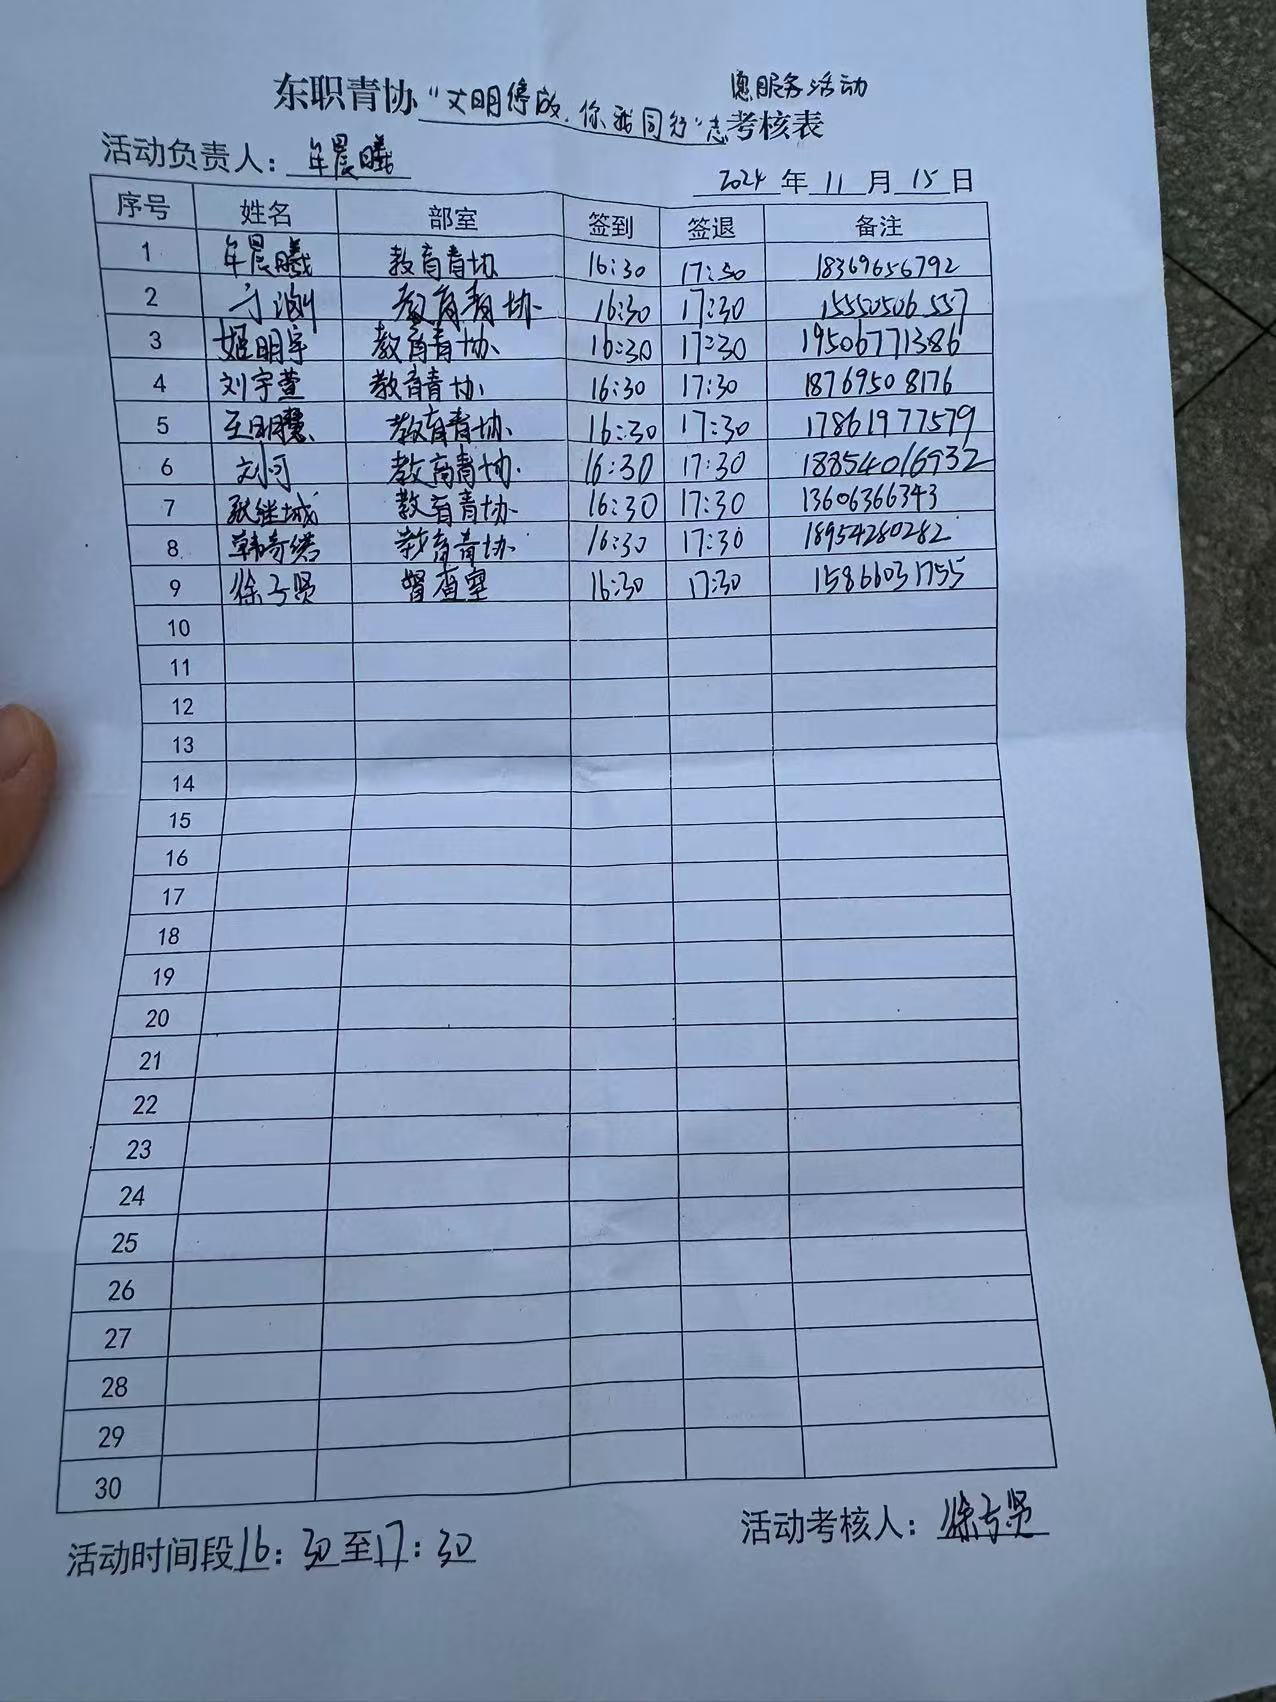 愿服务活动
东职青协“文明停放，你我同行”志考核表
活动负责人：牟晨曦
2024年11月15日
序号 姓名 部室 签到 签退 备注
1 牟晨曦 教育青协 16:30 17:30 18369656792
2 教育青协 16:30 17:30 15550506557
3 姬明宇 教育青协 16:30 17:30 19506771386
4 刘宇萱 教育青协 16:30 17:30 18769508176
5 王明慧 教育青协 16:30 17:30 17861977579
6 刘珂 教育青协 16:30 17:30 18854016932
7 张继城 教育青协 16:30 17:30 13606366343
8 教育青协 16:30 17:30 18954280282
9 徐子贤 督查室 16:30 17:30 15866031755
10
11
12
13
14
15
16
17
18
19
20
21
22
23
24
25
26
27
28
29
30
活动时间段16：30至17：30
活动考核人：徐子贤